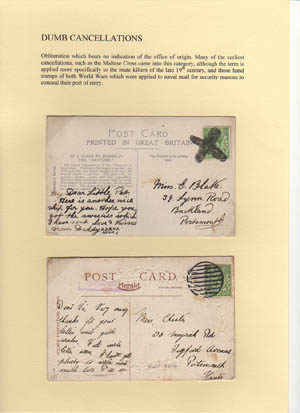 DUMB CANCELLATIONS
Obliteration which bears no indication of the office of origin. Many of the earliest
cancellations, such as the Maltese Cross came into this category, although the term is
applied more specifically to the mute killers of the late 19th century, and those hand
stamps of both World Wars which were applied to naval mail for security reasons to
conceal their port of entry.
POST CARD
PRINTED IN GREAT BRITAIN
IN A CLASS BY HERSELF.
My Dear Little Pet.
Here is another nice
ship for you. Hope you
got the sweeties which
I have sent. Love & Kisses
from Daddy xxxx
Miss E. Blake.
39. Lynn Road
Buckland
Portsmouth
POST CARD
Herald
Dear Vi Very many
thanks for your
letter and good
wishes Will write
later
much love
Mrs
Avenue
Portsmouth
Hants